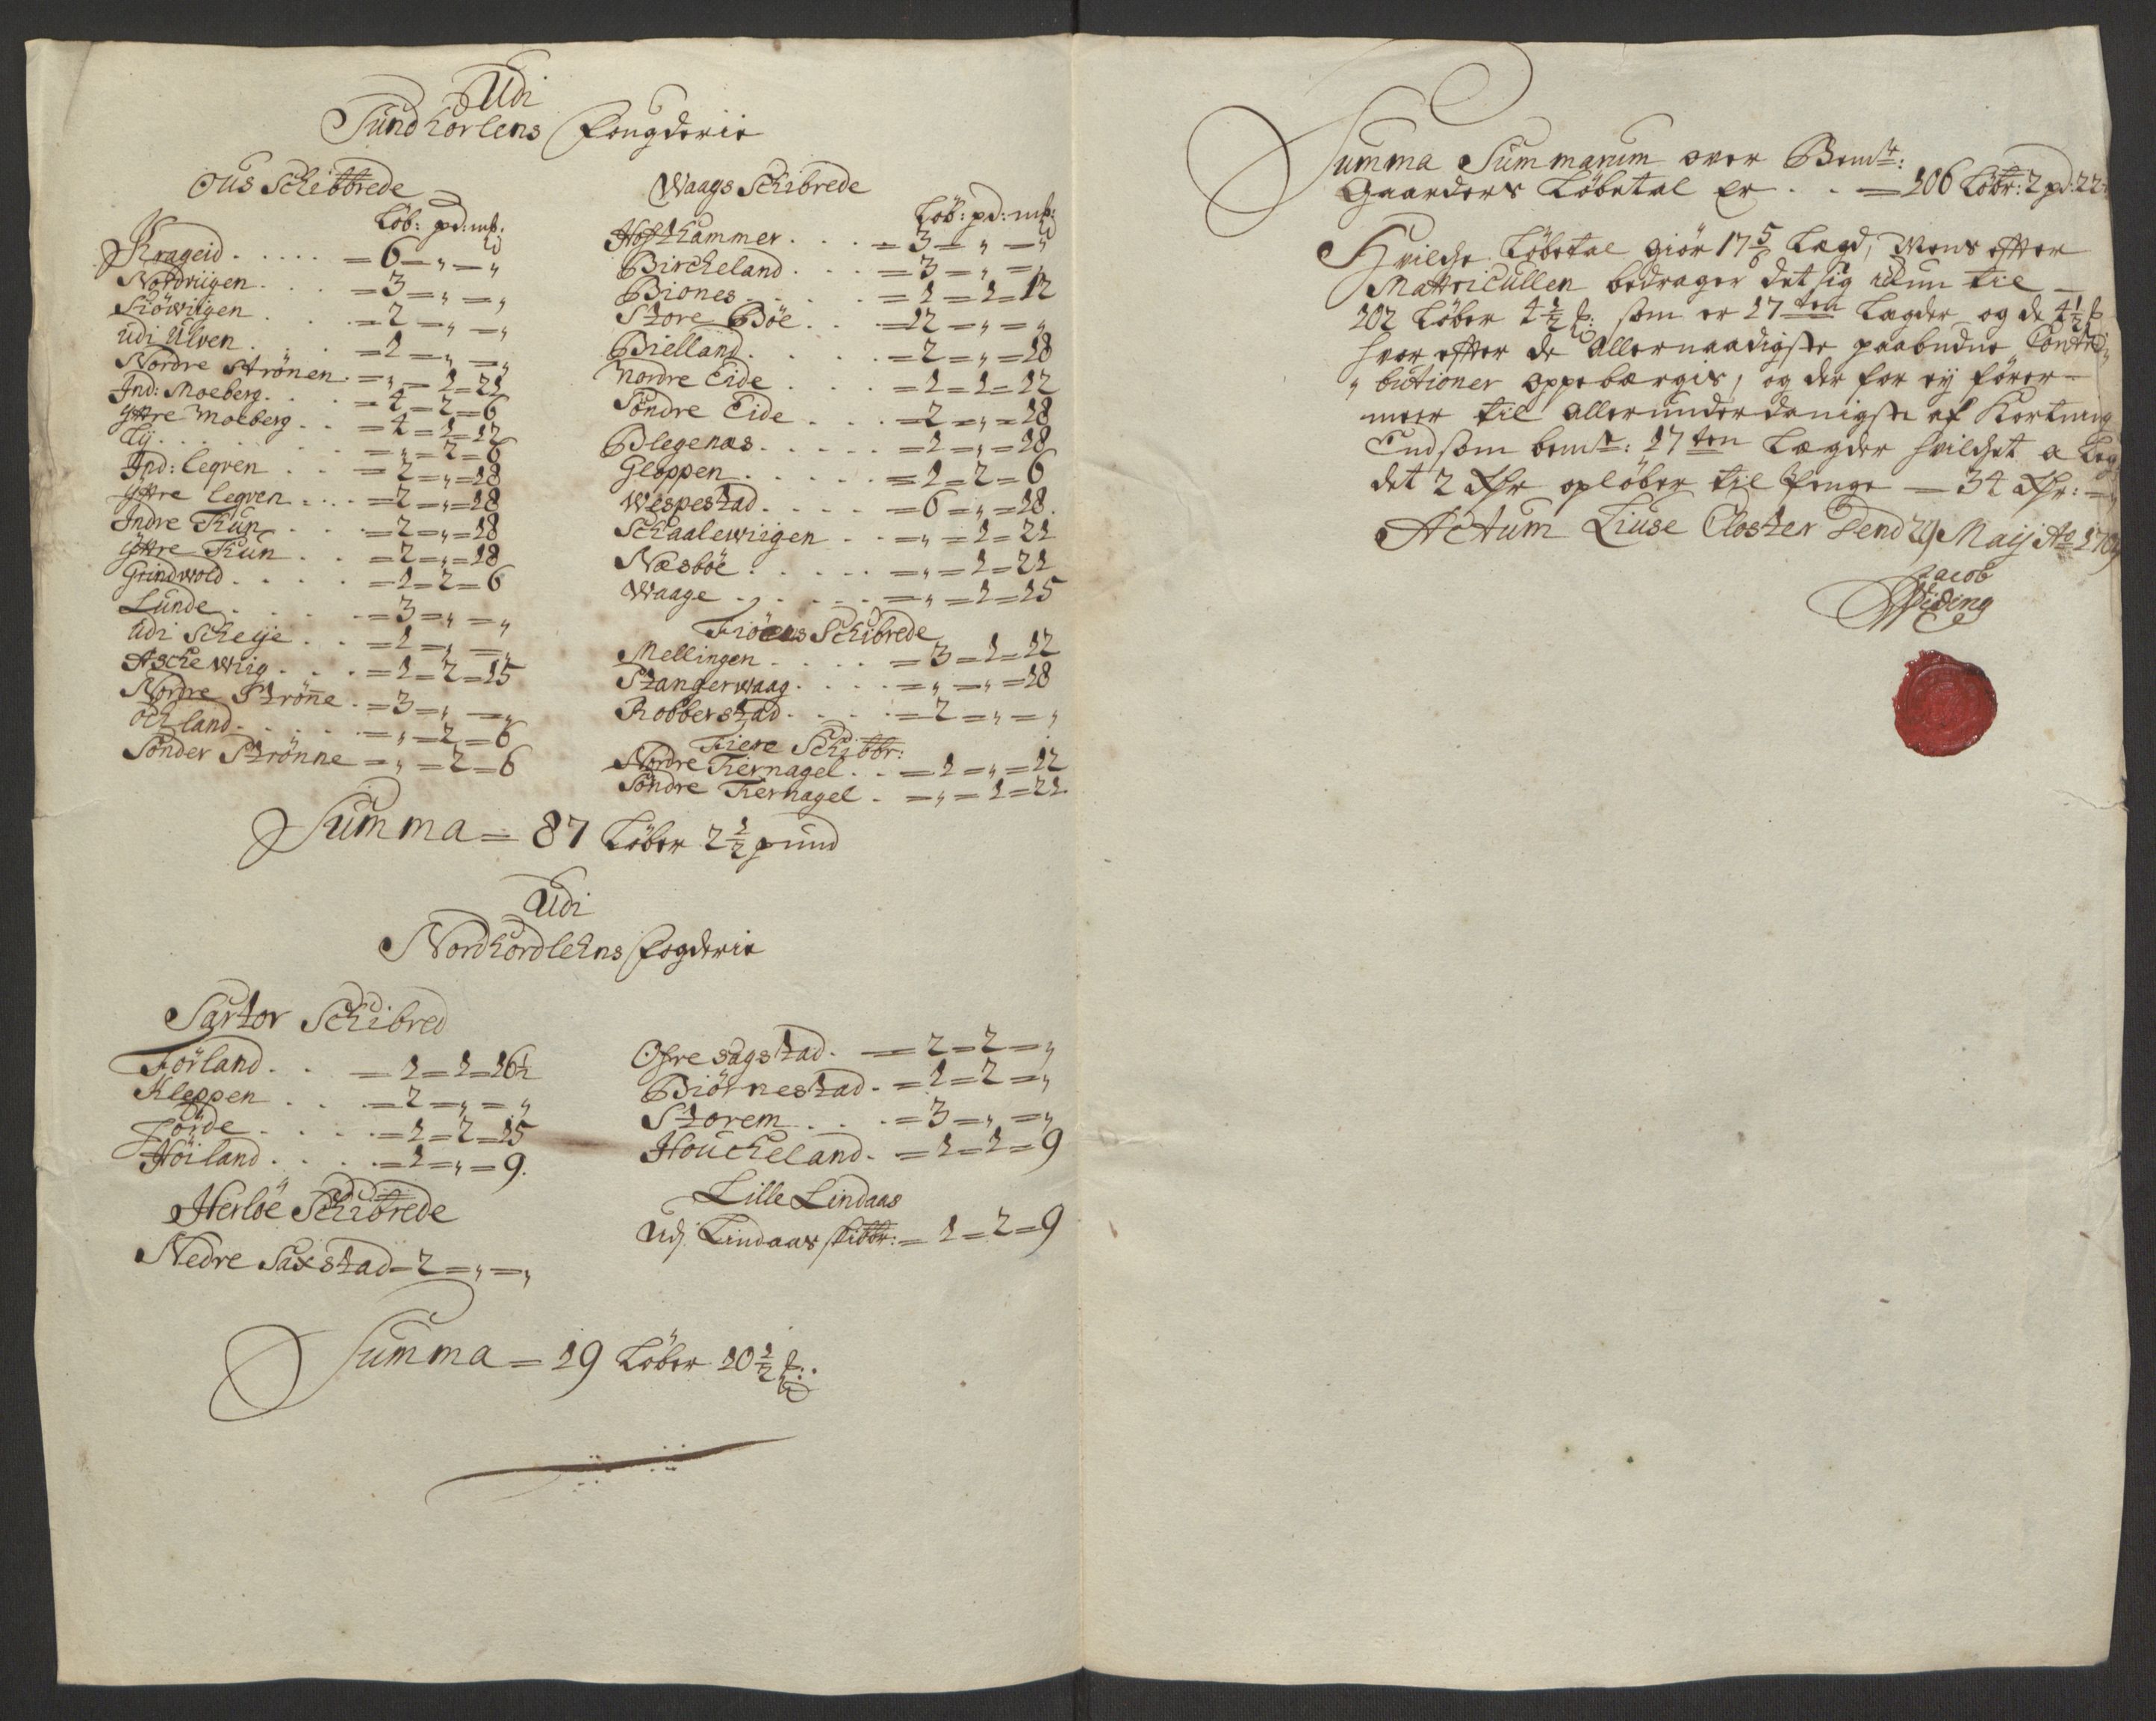 Udi
Sundhorlens Fougderie
Ous Schibbrede
Löb: pd: mk:
Krageid . . . . . = 6 = „ = „
Nordviigen . . . = 3 = „ = „
Siöwiigen . . . = 2 = „ = „
udi Ulven . . . . = 1 = „ = „
Nordre Strönen . = „ = 1 = 21
Ind: Moeberg . . . = 4 = 2 = 6
ÿttre Moeberg . . = 4 = 1 = 12
Lÿ . . . . . . . = „ = 2 = 6
Ind: Legven . . . = 2 = „ = 18
ÿttre Legven . . . = 2 = „ = 18
Indre Tiun . . . = 2 = „ = 18
ÿttre Tiun . . . = 2 = „ = 18
Grindwold . . . . = 1 = 2 = 6
Lunde . . . . . = 3 = „ = „
Udi Scheÿe . . = 1 = „ = „
Aschewiig . . . . = 1 = 2 = 15
Nordre Strönne . = 3 = „ = „
Öchland . . . . . = „ = 2 = 6
Sönder Strönne = „ = 2 = 6
Waags Schibrede
Löb: pd: mk:
Hofzhammer . . . = 3 = „ = „
Bircheland . . . = 3 = „ = „
Biones . . . . . = 1 = 1 = 12
Store Böe . . . = 12 = „ = „
Bielland . . . . . = 2 = „ = 18
Nordre Eide . . . = 1 = 1 = 12
Söndre Eide . . . = 2 = „ = 18
Blegenæs . . . . . = 1 = „ = 18
Gloppen . . . . . = 1 = 2 = 6
Wespestad . . . . = 6 = „ = 18
Schaalewiigen . . = „ = 1 = 21
Næsböe . . . . . = „ = 1 = 21
Waage . . . . . . = „ = 1 = 15
Fiöens Schibrede
Mellingen . . . . = 3 = 1 = 12
Stangerwaag . . . . = „ = „ = 18
Robberstad . . . . = 2 = „ = „
Fiere Schibbr:
Nordre Tiernagel . . = 1 = „ = 12
Söndre Tiernagel . = „ = 1 = 21
Summa = 87 Löber 2 1/2 pund
Udi
Nordhordlehns Fogderie
Sartor Schibred
Förland . . . = 1 = 1 = 16 1/2
Kleppen . . . . = 2 = „ = „
Förde . . . . . = 1 = 2 = 15
Höiland . . . . . = 1 = „ = 9.
Herlöe Schibrede
Nedre Saxstad = 2 = „ = „
Ofre sagstad . = 2 = 2 = „
Biörnestad . = 1 = 2 = „
Storem . . . = 3 = „ = „
Houcheland . = 1 = 1 = 9
Lille Lindaas
Udj Lindaas skibbr: = 1 = 2 = 9
Summa = 19 Löber 10 1/2 mk:
Summa Summarum over Bemte:
Gaarders Löbetal Er . . = 106 Löbr: 2 pd: 22
Hvilche Löbetal giör 17 5/6 Lægd, Mens efter
Mattricullen bedrager det sig ickun til
102 Löber 4 1/2 mk: som er 17ten Lægder og de 4 1/2 mk
hvor efter de Allernaadigste paabudne Contri„
„butioner oppebærgis, og der for ey förer
meer til Allerunderdanigst af Kortning
End som bemte: 17ten Lægder hvilchet a Leg
det 2 Rdr oplöber til Penge = 34 Rdr: =
Actum Liuse Closter dend 29 Maÿ Ao 170
Jacob
Widing